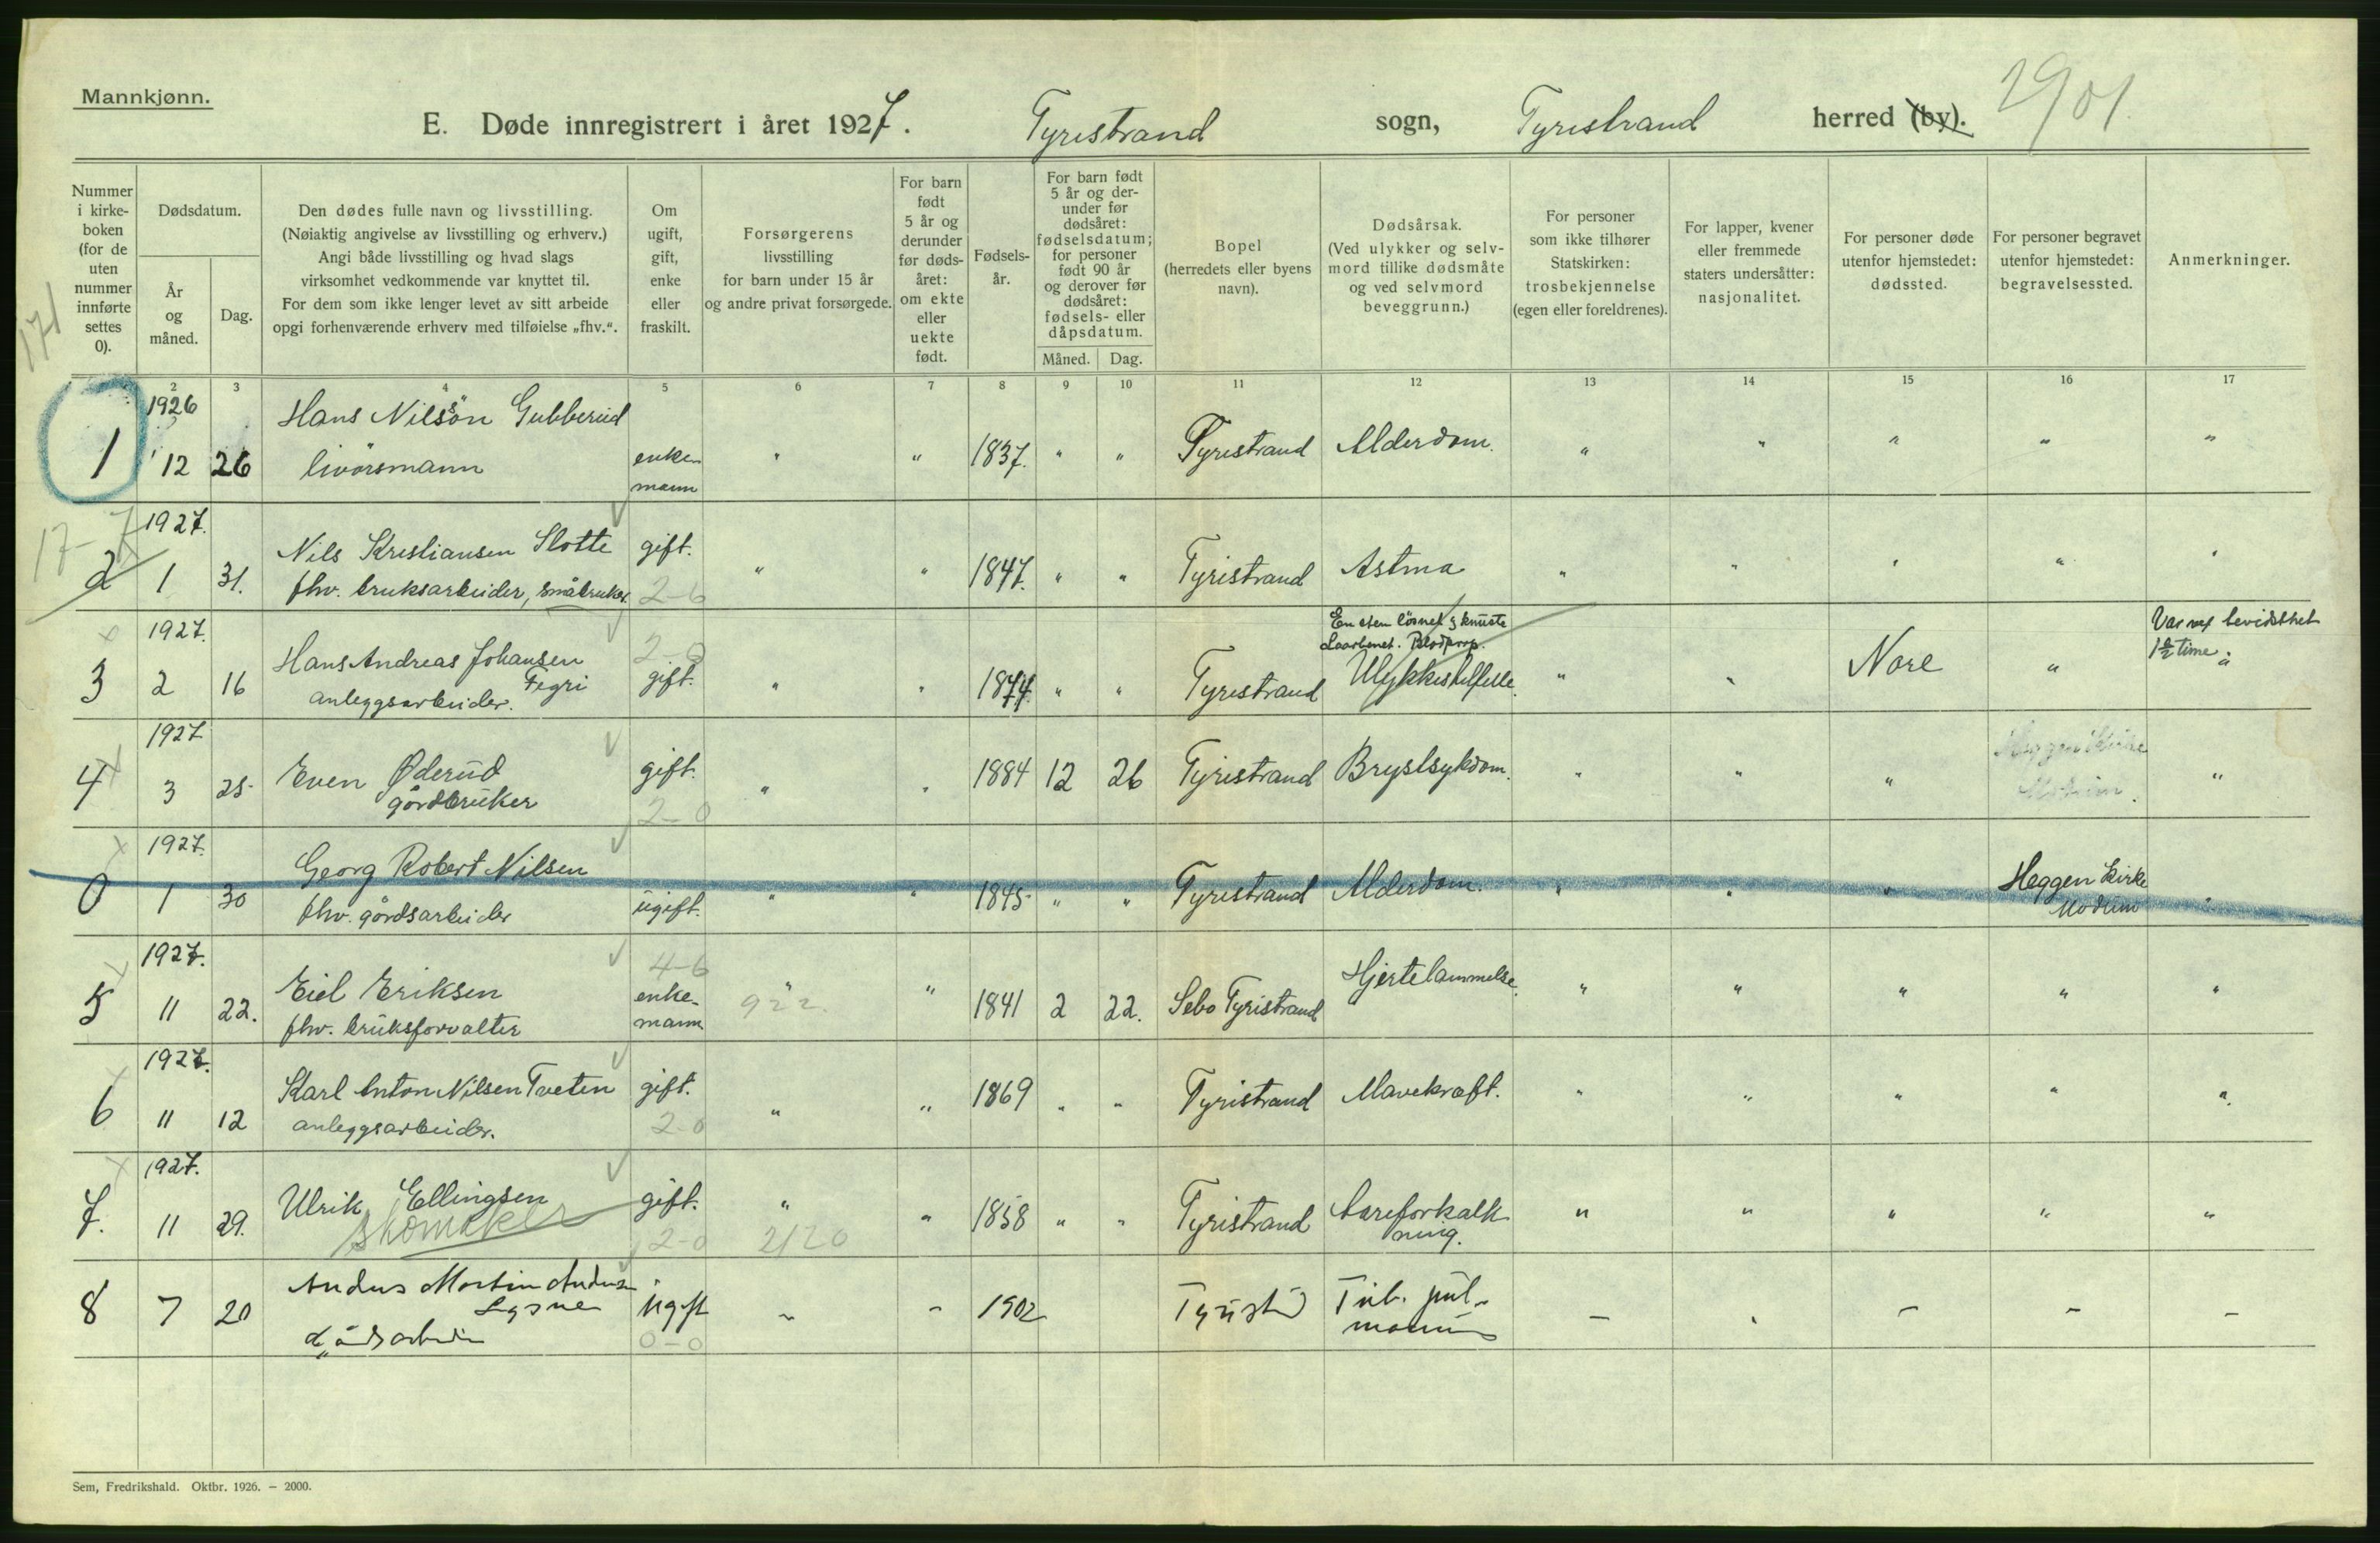 Mannkjønn.
E. Døde innregistrert i året 1927. Tyristrand sogn, Tyristrand herred (by). 2901.
Nummer i kirkeboken (for de uten nummer innførte settes 0).
Dødsdatum.
År og måned.
Dag.
Den dødes fulle navn og livsstilling.
(Nøiaktig angivelse av livsstilling og erhverv.)
Angi både livsstilling og hvad slags
virksomhet vedkommende var knyttet til.
For dem som ikke lenger levet av sitt arbeide
opgi forhenværende erhverv med tilføielse „fhv.“.
Om ugift, gift, enke eller fraskilt.
Forsørgerens
livsstilling
for barn under 15 år
og andre privat forsørgede.
For barn født 5 år og derunder før dødsåret: om ekte eller uekte født.
Fødselsår.
For barn født 5 år og derunder før dødsåret: fødselsdatum; for personer født 90 år og derover før dødsåret: fødsels- eller dåpsdatum.
Måned. Dag.
Bopel
(herredets eller byens navn).
Dødsårsak.
(Ved ulykker og selvmord tillike dødsmåte og ved selvmord beveggrunn.)
For personer som ikke tilhører Statskirken: trosbekjennelse (egen eller foreldrenes).
For lapper, kvener eller fremmede staters undersåtter: nasjonalitet.
For personer døde utenfor hjemstedet: dødssted.
For personer begravet utenfor hjemstedet: begravelsessted.
Anmerkninger.
171
2 3 4 5 6 7 8 9 10 11 12 13 14 15 16 17
1926
1 12 26 Hans Nilsön Gubberud enke- " " 1837. " " Tyristrand Alderdom. " " " " "
livörsmann mann
17-7
1927.
2 1 31. Nils Kristiansen Slotte gift. " " 1847. " " Tyristrand Astma " " " " "
fhv. bruksarbeider, småbruker. 2-6
1927.
3 2 16 Hans Andreas Johansen Fegri 2-0 gift. " " 1874 " " Tyristrand En sten løsnet & knuste
Laarbenet. Blodprop.
Ulykkestilfelle. " " Nore " Var ved bevidsthet
1½ time "
anleggsarbeider.
1927
4 3 25 Even Øderud gift. " " 1884 12 26 Tyristrand Brystsykdom. " " " Heggen Kirke "
gårdbruker 2-0 Modum.
1927.
0 1 30 Georg Robert Nilsen ugift. " " 1845 " " Tyristrand Alderdom. " " " Heggen Kirke "
fhv. gårdsarbeider Modum
1927.
5 11 22. Eiel Eriksen 4-6 enke- " " 1841 2 22. Sebo Tyristrand Hjertelammelse. " " " " "
fhv. bruksforvalter mann 922.
1927.
6 11 12 Karl Anton Nilsen Tveten gift. " " 1869 " " Tyristrand Mavekræft. " " " " "
anleggsarbeider. 2-0
1927.
7. 11 29. Ulrik Ellingsen gift. " " 1858 " " Tyristrand Aareforkalk- " " " " "
skomaker 2-0 2120 ning.
8 7 20 Andus Martin Andus Lysne Ugift " - 1902 Tyristr Tub. pul- - - - - -
0-0
Sem, Fredrikshald. Oktbr. 1926. – 2000.